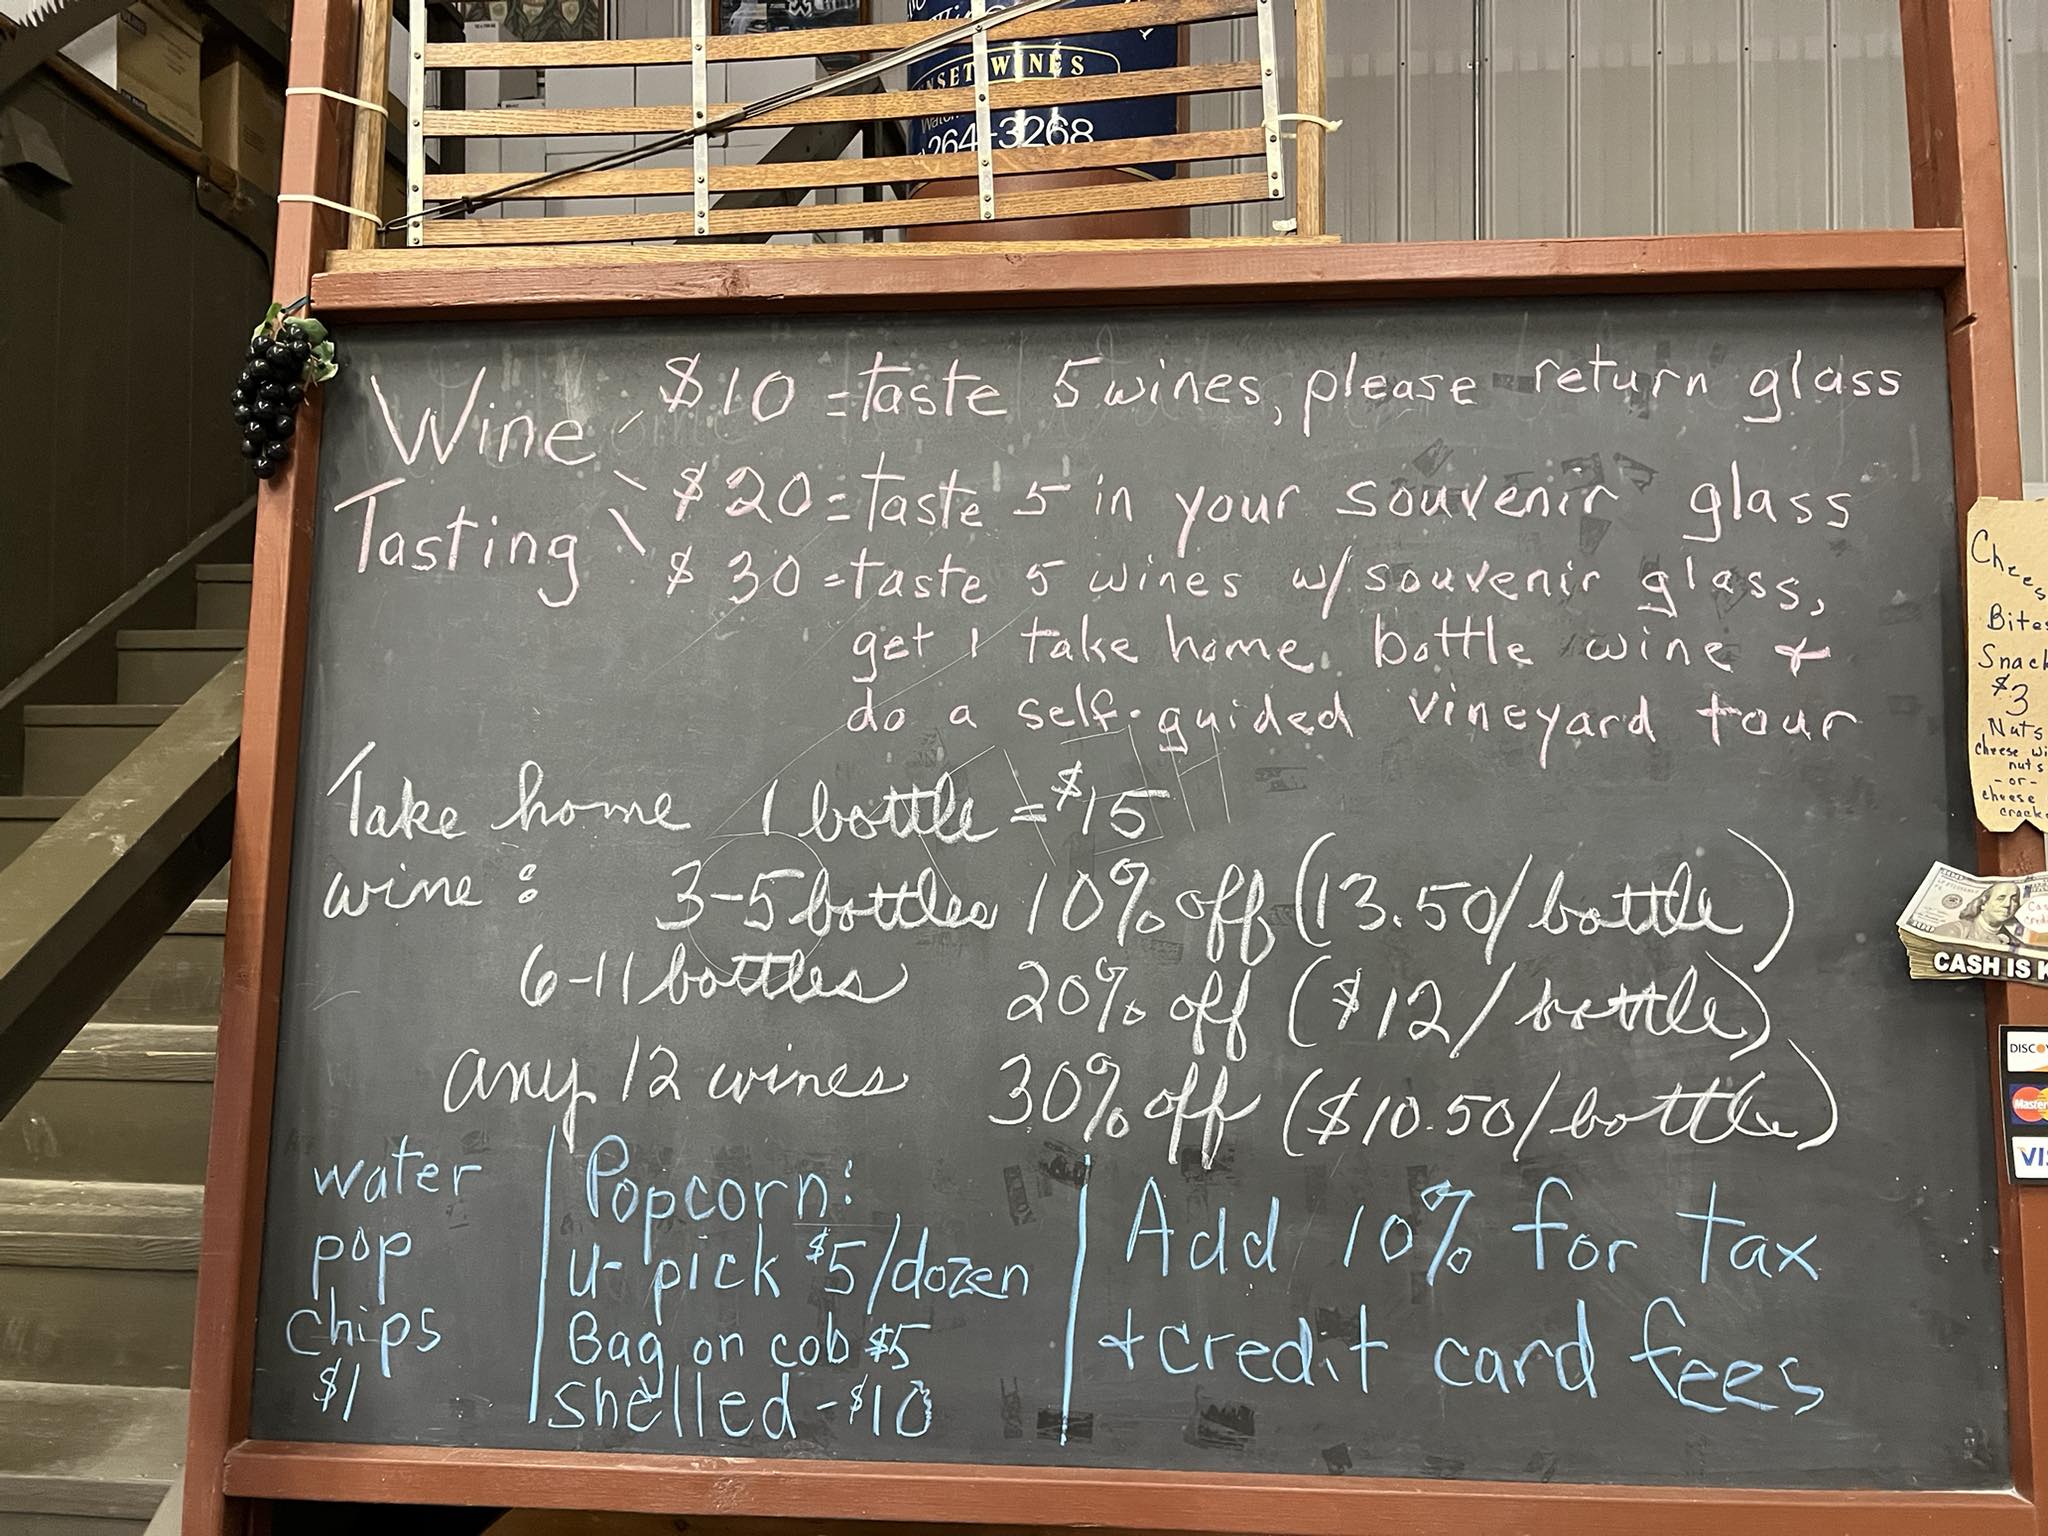 WINES
264-3268
Wine
Tasting
$10 = taste 5 wines, please return glass
$20 = taste 5 in your souvenir glass
$30 = taste 5 wines w/ souvenir glass,
get 1 take home bottle wine &
do a self-guided vineyard tour
Take home 1 bottle = $15
wine: 3-5 bottles 10% off (13.50/bottle)
6-11 bottles 20% off ($12/bottle)
any 12 wines 30% off ($10.50/bottle)
water
pop
chips
$1
Popcorn:
U-pick $5/dozen
Bag on cob $5
Shelled - $10
Add 10% for tax
+ credit card fees
Chees
Bites
Snack
$3
Nuts
cheese wi
nuts
- or -
cheese
crack
CASH IS K
DISCO
Master
VIS